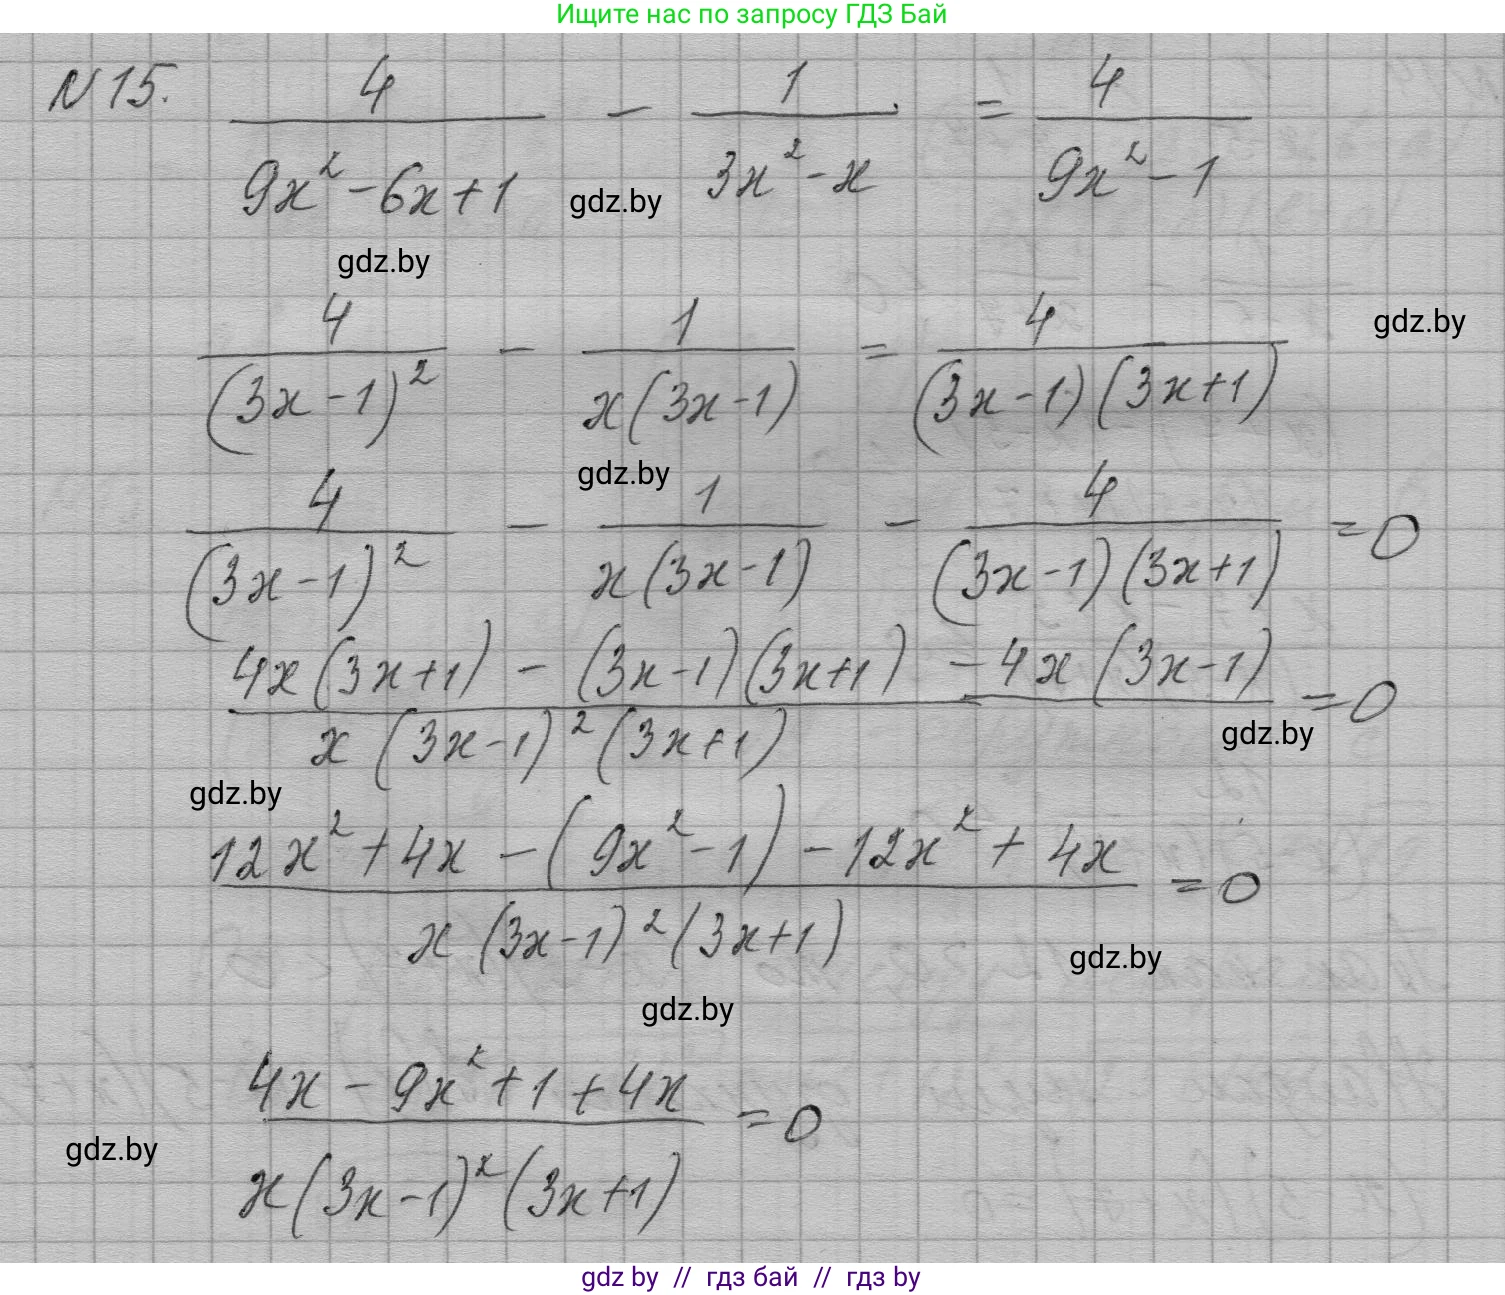 Ищите нас по запросу ГДЗ Бай
N 15. 4/(9x² - 6x + 1) - 1/(3x² - x) = 4/(9x² - 1)
gdz.by
gdz.by
4/(3x - 1)² - 1/(x(3x - 1)) = 4/((3x - 1)(3x + 1))
gdz.by
gdz.by
4/(3x - 1)² - 1/(x(3x - 1)) - 4/((3x - 1)(3x + 1)) = 0
(4x(3x + 1) - (3x - 1)(3x + 1) - 4x(3x - 1))/(x(3x - 1)²(3x + 1)) = 0
gdz.by
gdz.by
(12x² + 4x - (9x² - 1) - 12x² + 4x)/(x(3x - 1)²(3x + 1)) = 0
gdz.by
gdz.by
(4x - 9x² + 1 + 4x)/(x(3x - 1)²(3x + 1)) = 0
gdz.by
gdz by // гдз бай // гдз by